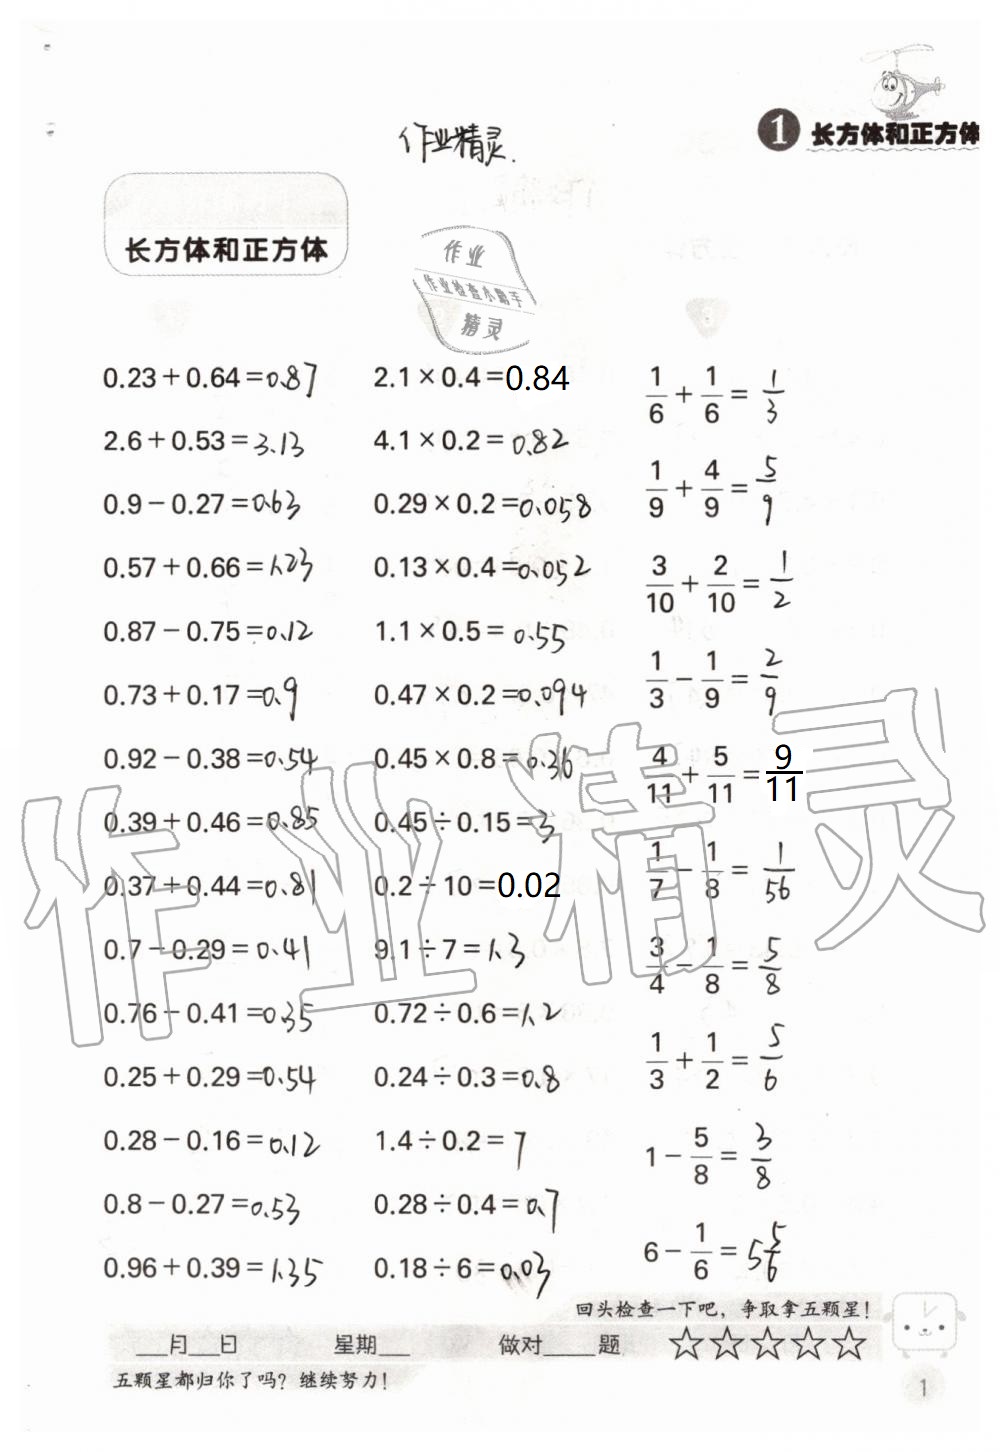 作业精灵.
1 长方体和正方体
长方体和正方体
作业
作业检查小助手
精灵
0.23+0.64=0.87
2.6+0.53=3.13
0.9-0.27=0.63
0.57+0.66=1.23
0.87-0.75=0.12
0.73+0.17=0.9
0.92-0.38=0.54
0.39+0.46=0.85
0.37+0.44=0.81
0.7-0.29=0.41
0.76-0.41=0.35
0.25+0.29=0.54
0.28-0.16=0.12
0.8-0.27=0.53
0.96+0.39=1.35
2.1×0.4=0.84
4.1×0.2=0.82
0.29×0.2=0.058
0.13×0.4=0.052
1.1×0.5=0.55
0.47×0.2=0.094
0.45×0.8=0.36
0.45÷0.15=3
0.2÷10=0.02
9.1÷7=1.3
0.72÷0.6=1.2
0.24÷0.3=0.8
1.4÷0.2=7
0.28÷0.4=0.7
0.18÷6=0.03
1/6+1/6=1/3
1/9+4/9=5/9
3/10+2/10=1/2
1/3-1/9=2/9
4/11+5/11=9/11
1/7-1/8=1/56
3/4-1/8=5/8
1/3+1/2=5/6
1-5/8=3/8
6-1/6=5 5/6
作业精灵
回头检查一下吧，争取拿五颗星！
___月___日 星期___ 做对_____题 ☆☆☆☆☆
五颗星都归你了吗？继续努力！
1